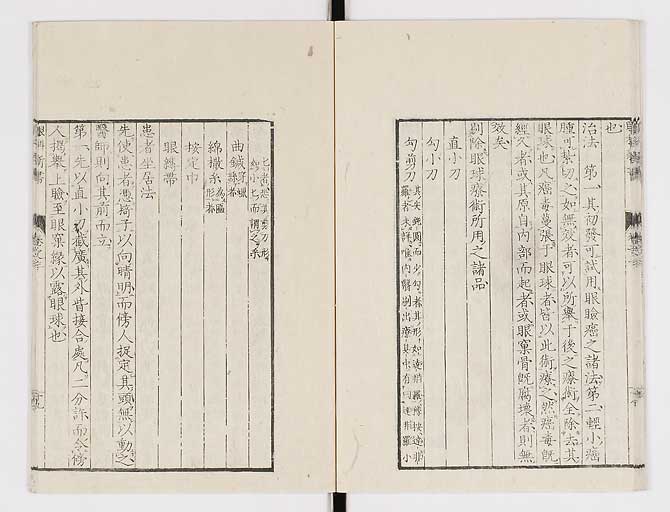 也
治法 第一其初發可試用眼瞼癌之諸法第二輕小癌
腫可紮切之如無效者可以所舉于後之療術全除去其
眼球也凡癌毒蔓張于眼球者皆以此術療之然癌毒既
經久者或其原自內部而起者或眼窠骨既腐壞者則無
效矣
剔除眼球療術所用之諸品
直小刀
勾小刀
勾剪刀
曲鍼
綿撒糸
按定巾
眼繃帶
患者坐居法
先使患者憑椅子以向晴明而傍人捉定其頭無以動之
醫師則向其前而立
第一先以直小刀截廣其外眥接合處凡二分許而令傍
人揭舉上瞼至眼窠緣以露眼球也